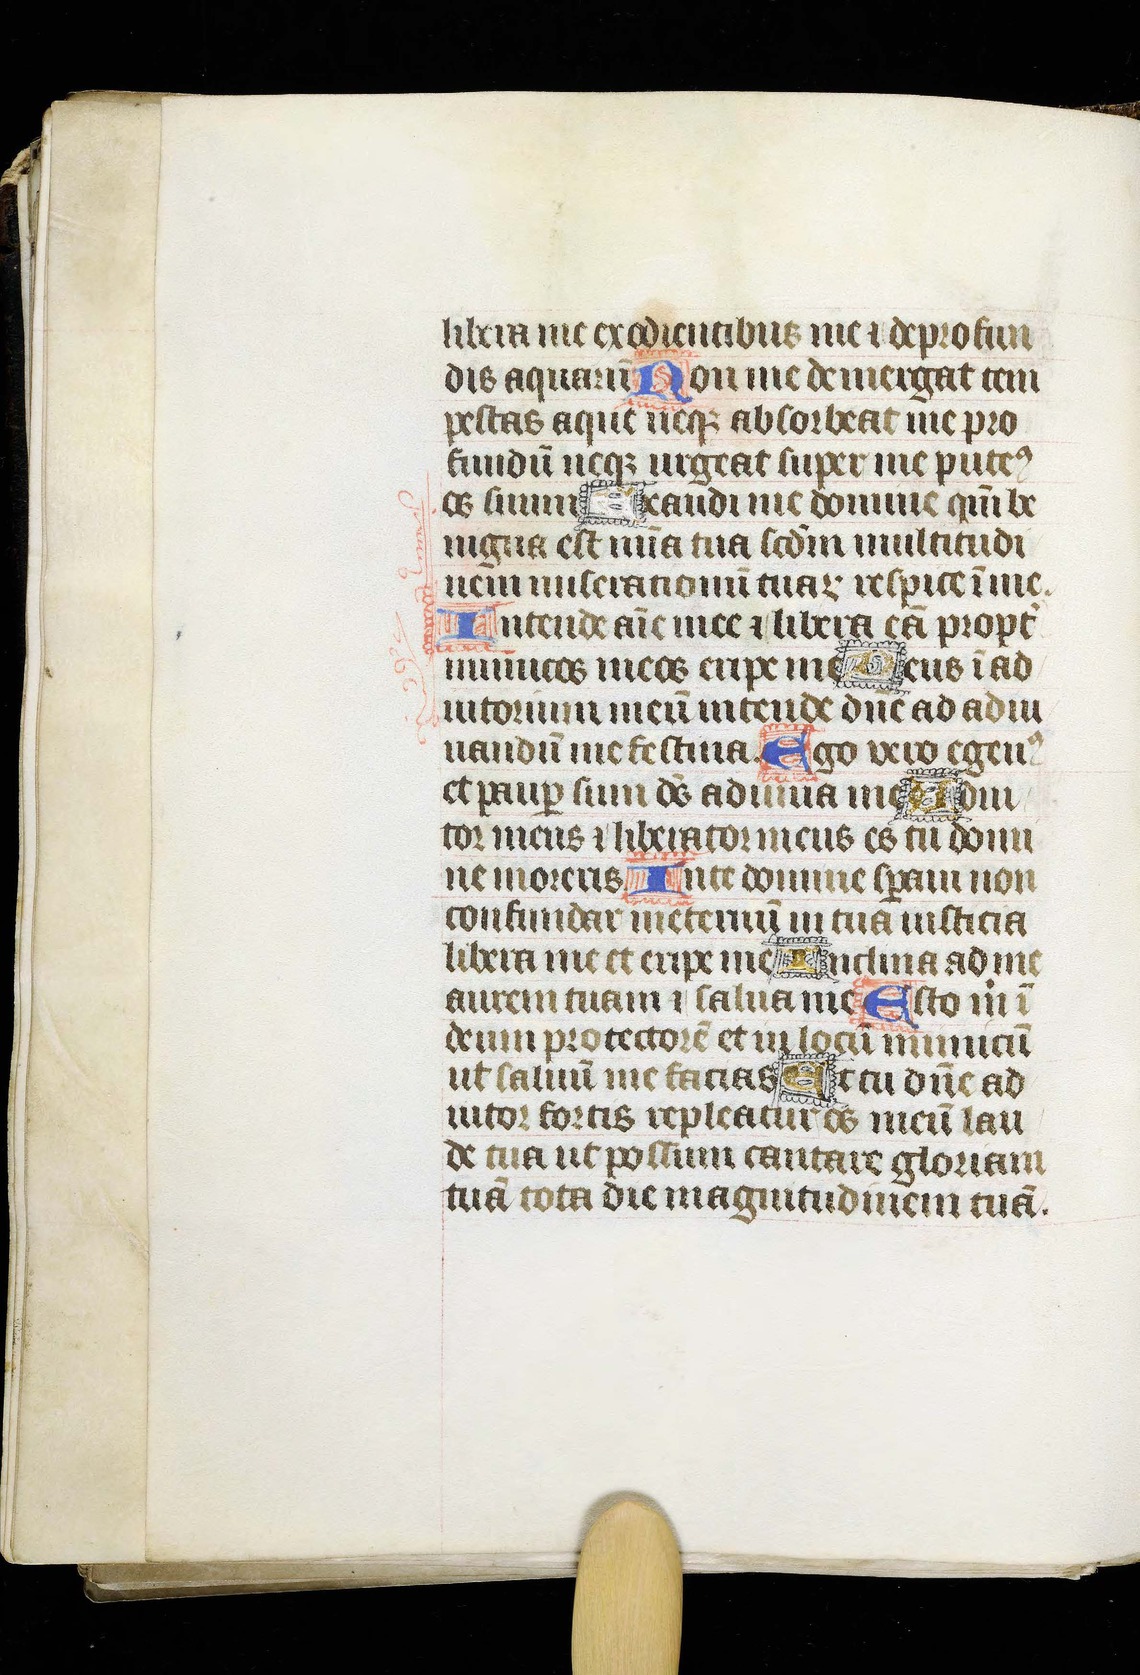 libera me ex odientibus me ⁊ de profun
dis aquarū Non me demergat tem
pestas aque neqꝫ absorbeat me pro
fundū neqꝫ urgeat super me puteꝰ
os suum Exaudi me domine qm̄ be
nigna est mīa tua scd̄m multitudi
nem miserationū tuaꝝ respice ī me.
Intende aīe mee ⁊ libera eā propt̄
inimicos meos eripe me Deus ī ad
iutorium meū intende dn̄e ad adiu
uandū me festina. Ego vero egenꝰ
et paup̄ sum ds̄ adiuua me Adiu
tor meus ⁊ liberator meus es tu domi
ne moreris In te domine speram non
confundar in eternū in tua iusticia
libera me et eripe me Inclina ad me
aurem tuam ⁊ salua me Esto m̄ ī
deum protectorē et in locū municiū
ut saluū me facias Et tu dn̄e ad
iutor fortis repleatur os meū lau
de tua ut possum cantare gloriam
tuā tota die magnitudinem tuā.